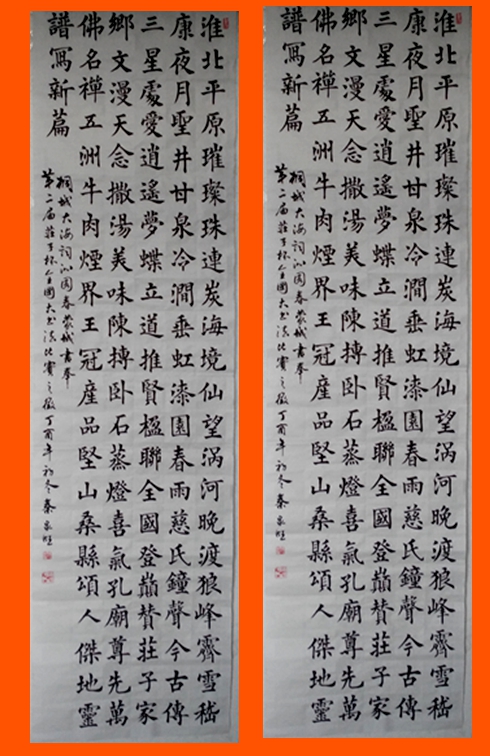 淮北平原璀璨珠連炭海境仙望涡河晚渡狼峰霽雪嵇
康夜月聖井甘泉冷澗垂虹漆園春雨慈氏鐘聲今古傳
三星處愛逍遙夢蝶立道推賢楹聯全國登巔贊莊子家
鄉文漫天念撒湯美味陳摶卧石蒸燈喜氣孔廟尊先萬
佛名禪五洲牛肉煙界王冠産品堅山桑縣頌人傑地靈
譜寫新篇
桐城大海詞沁園春蒙城書奉
第二届莊子杯全國大书法比賽之徵丁酉年初冬秦
淮北平原璀璨珠連炭海境仙望涡河晚渡狼峰霽雪嵇
康夜月聖井甘泉冷澗垂虹漆園春雨慈氏鐘聲今古傳
三星處愛逍遙夢蝶立道推賢楹聯全國登巔贊莊子家
鄉文漫天念撒湯美味陳摶卧石蒸燈喜氣孔廟尊先萬
佛名禪五洲牛肉煙界王冠産品堅山桑縣頌人傑地靈
譜寫新篇
桐城大海詞沁園春蒙城書奉
第二届莊子杯全國大书法比賽之徵丁酉年初冬秦